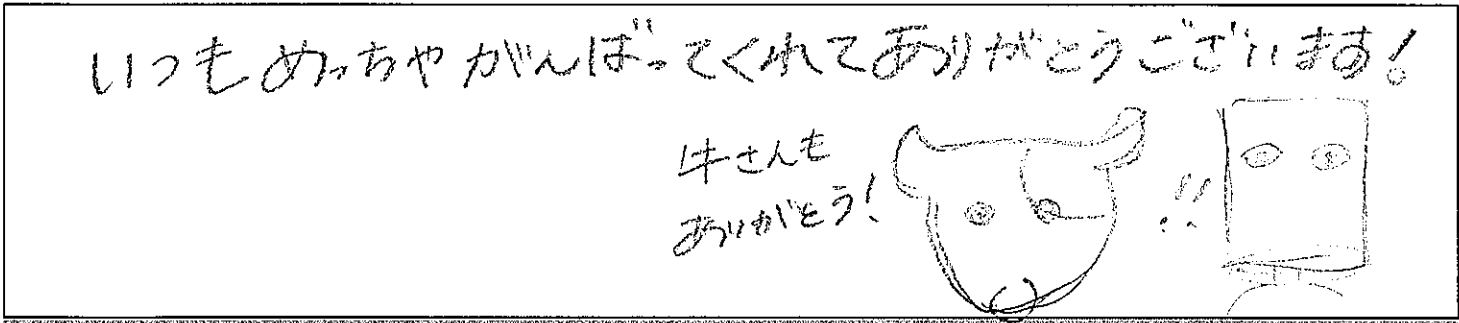 いつもめっちゃがんばってくれてありがとうございます!
牛さんも
ありがとう!
!!